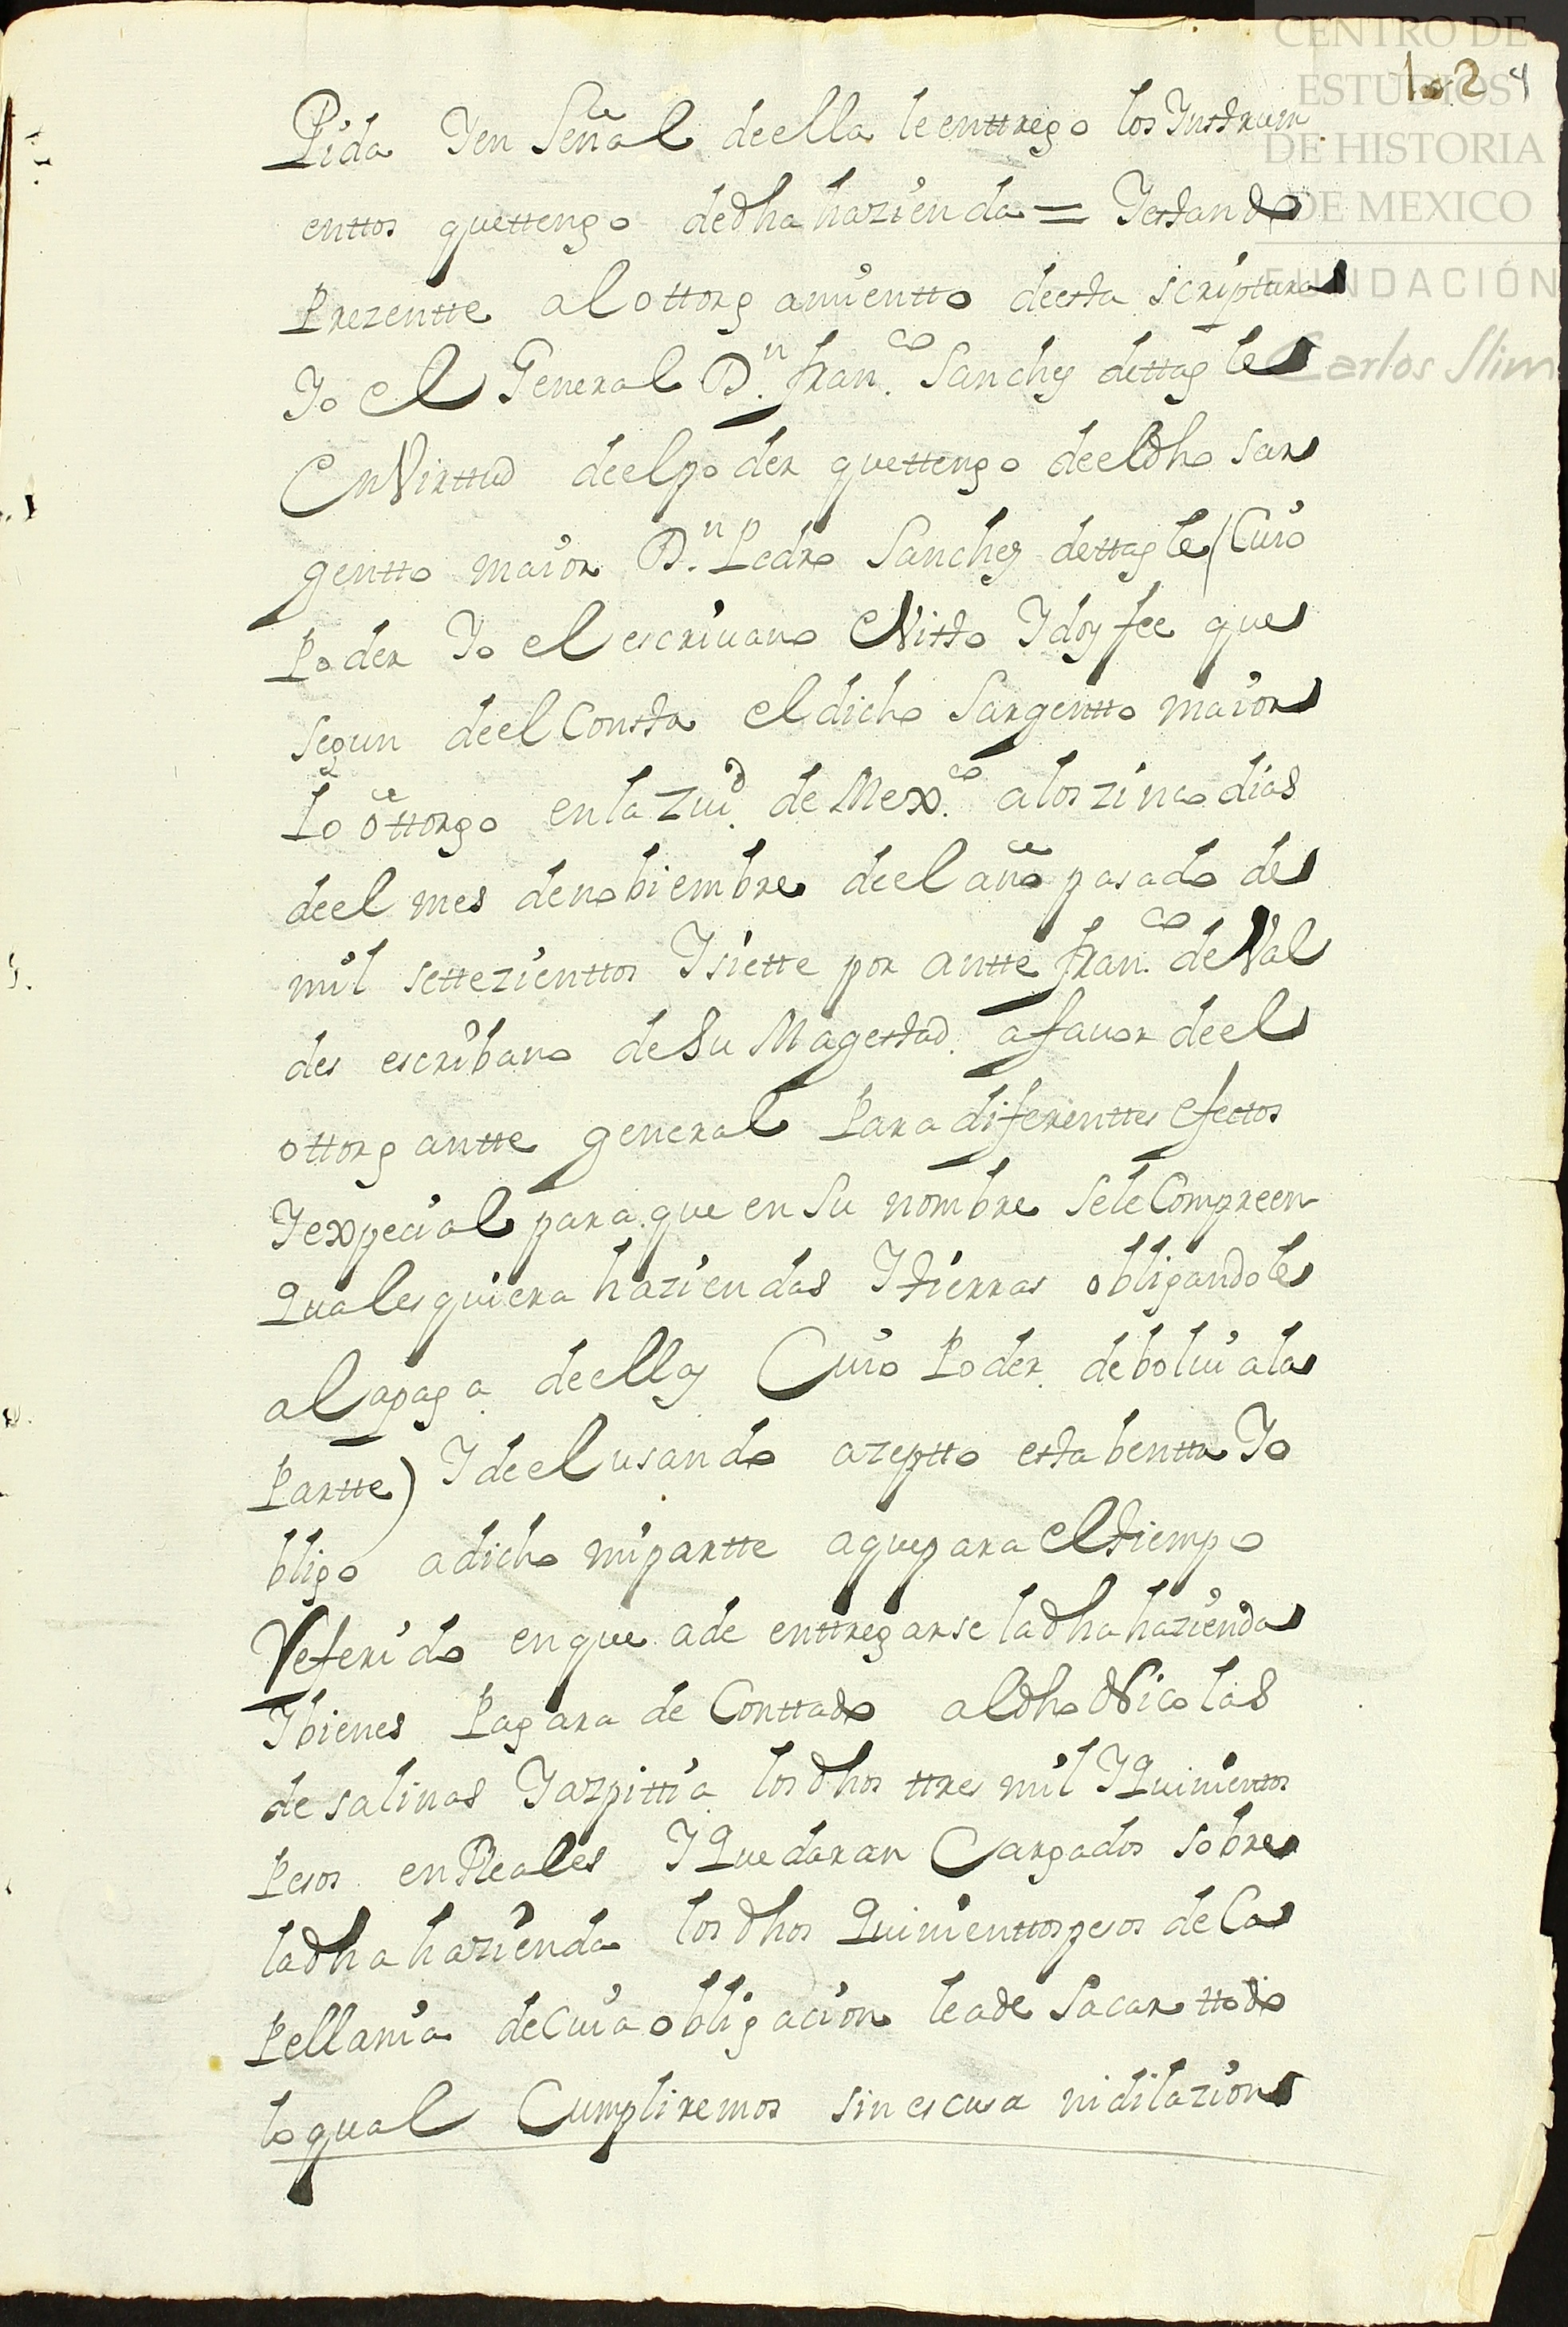 CENTRO DE
ESTUDIOS
DE HISTORIA
DE MEXICO
FUNDACIÓN
Carlos Slim
102 4
Pida Yen Señal deella leenttrego los Ynstrum
enttos quettengo dedha hazienda = Yestando
Prezentte alottorgamientto deesta scriptura
Yo el General D.n fran.co Sanches dettagle
EnVirttud deelpoder quettengo deeldho sar
gentto maior D.n Pedro Sanches dettagle (Cuio
Poder Yo el escriuano eVisto Ydoy fee que
segun deel Consta eldicho Sargentto maior
Lo ottorgo enla Ziud. de Mex.co alos zinco dias
deel mes denobiembre deel año pasado de
mil settezienttos Ysiette por antte fran.co deVal
des escribano deSu Magestad. afauor deel
ottorgantte general Para diferenttes efectos
Yexpecial para.que en Su nombre SeleCompreen
Qualesquiera haziendas Ytierras obligandole
alapaga deellas Cuio Poder debolui ala
Partte) Ydeel usando azeptto esta bentta Yo
bligo adicho mipartte aquepara eltiempo
Referido enque ade enttregarse ladha hazienda
Ybienes Pagara de Conttado aldho Nicolas
de salinas Yazpittia los dhos ttres mil YQuinientos
Pesos enReales YQuedaran Cargados sobre
ladha hazienda los dhos Quinienttos pesos de Ca
Pellania deCuia obligacion leade Sacar ttodo
loqual Cumpliremos sin escusa nidilazion